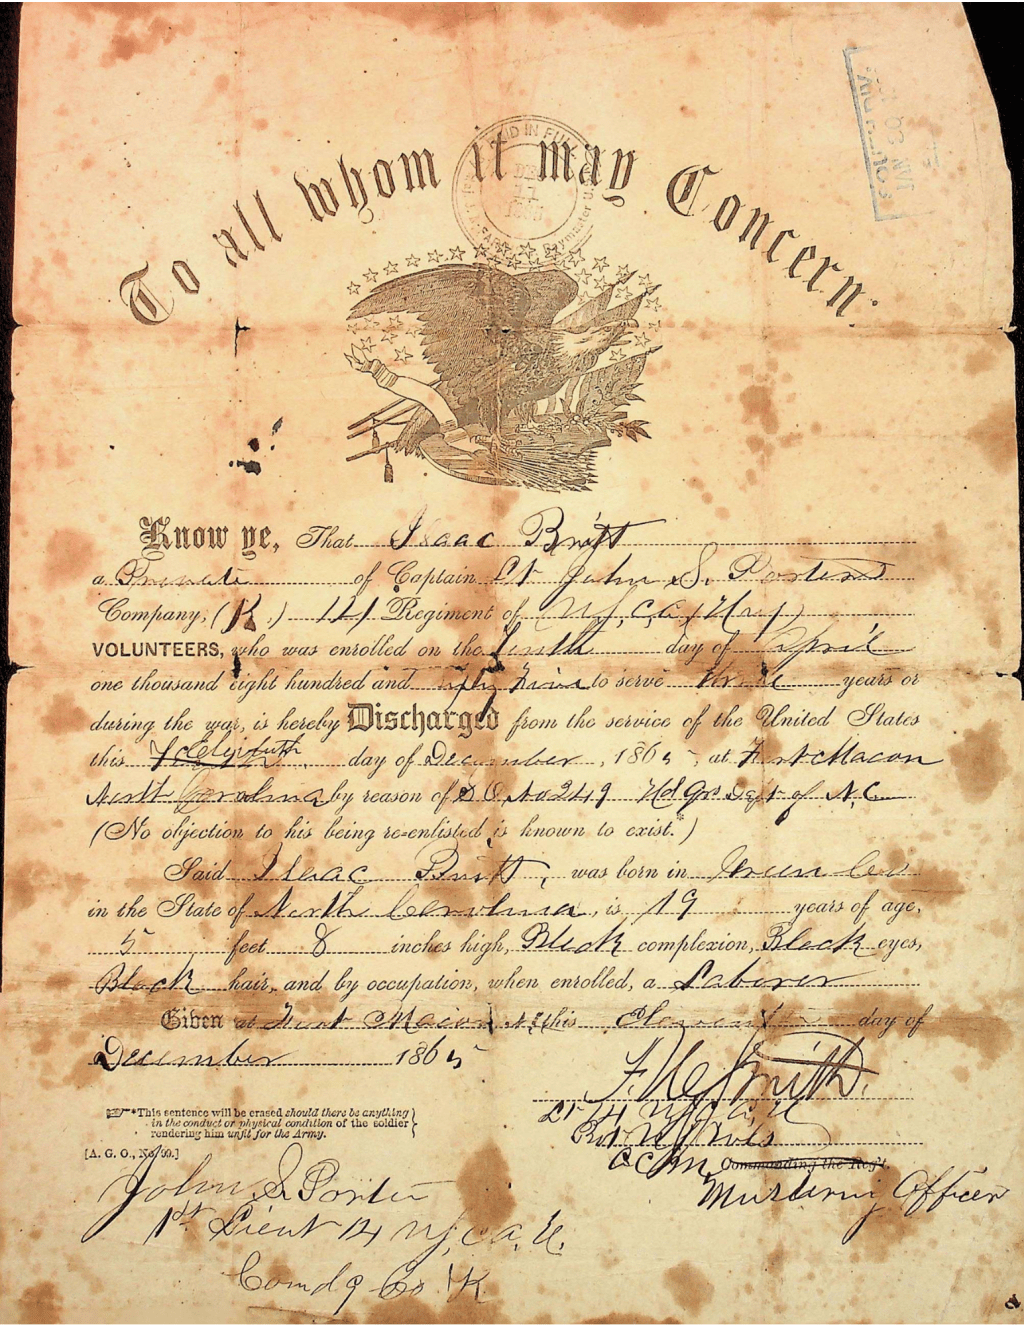 PAID IN FULL
Paymaster
DEC
11
JAN 30
To all whom it may Concern.
Know ye, That Isaac Britt
a Private of Captain Lt John S. Porters
Company, (K.) 14 Regiment of (U.S.C.A. (Hvy)
VOLUNTEERS, who was enrolled on the Tenth day of April
one thousand eight hundred and sixty Five to serve three years or
during the war, is hereby Discharged from the service of the United States
this Eleventh day of December, 1865, at Fort Macon
North Carolina by reason of S O No 249 Hd Qrs Dept of N.C.
(No objection to his being re-enlisted is known to exist.*)
Said Isaac Britt, was born in Green Co
in the State of North Carolina, is 19 years of age,
5 feet 8 inches high, Black complexion, Black eyes,
Black hair, and by occupation, when enrolled, a Laborer
Given at Fort Macon N.C. this Eleventh day of
December 1865
Smith.
Lt 14 U.S.C.A.H
*This sentence will be erased should there be anything
in the conduct or physical condition of the soldier
rendering him unfit for the Army.
[A. G. O., No. 99.]
A.C.M. Commanding the Reg't.
Mustering Officer
John S. Porter
1st Lieut 14 U.S.C.A.H.
Comdg Co. "K"